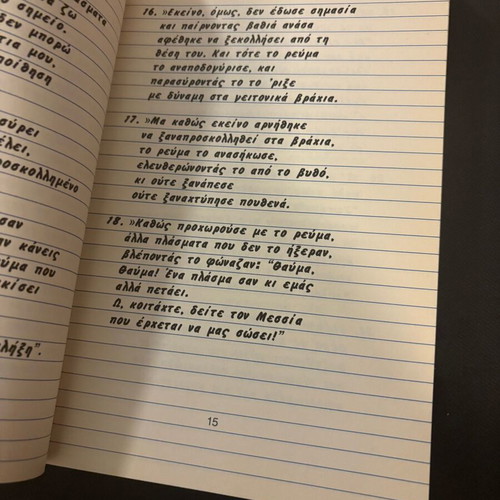 άσματα
ζω
σημείο.
δεν μπορώ
τια μου.
ποίθηση
σύρει
έλει.
οσκολλημένο
σαν
ην κάνεις
εύμα που
κίσει
λήξη".
16. »Εκείνο, όμως, δεν έδωσε σημασία
και παίρνοντας βαθιά ανάσα
αφέθηκε να ξεκολλήσει από τη
θέση του. Και τότε το ρεύμα
το αναποδογύρισε, και
παρασύροντάς το το 'ριξε
με δύναμη στα γειτονικά βράχια.
17. »Μα καθώς εκείνο αρνήθηκε
να ξαναπροσκολληθεί στα βράχια,
το ρεύμα το ανασήκωσε,
ελευθερώνοντάς το από το βυθό.
κι ούτε ξανάπεσε
ούτε ξαναχτύπησε πουθενά.
18. »Καθώς προχωρούσε με το ρεύμα,
άλλα πλάσματα που δεν το ήξεραν,
βλέποντάς το φώναζαν: "Θαύμα,
θαύμα! Ένα πλάσμα σαν κι εμάς
αλλά πετάει.
Ω, κοιτάχτε, δείτε τον Μεσσία
που έρχεται να μας σώσει!"
15